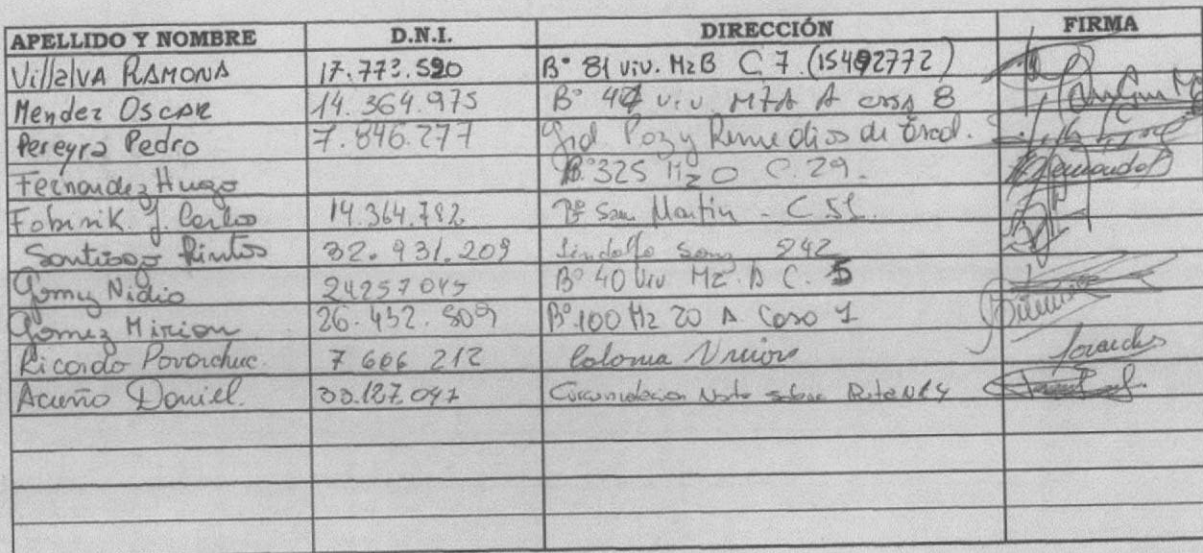 APELLIDO Y NOMBRE D.N.I. DIRECCIÓN FIRMA
VillalVA RAMONA 17.773.520 B° 81 viv. Mz B C 7 (15492772)
Mendez OSCAR 14.364.975 B° 47 viv MZA A casa 8
Pereyra Pedro 7.846.277 Paz y Remedios de Escal.
Fernandez Hugo B° 325 Mz O C. 29. Fernandez
Fobinik J. Carlos 14.364.782 B° San Martin - C 51
Santiago Pintos 32.931.209 Lindolfo 242
Gomez Nidio 24257045 B° 40 Viv Mz. D C. 5
Gomez Mirion 26.452.809 B° 100 Mz 20 A Casa 1
Ricardo Povarchuc. 7 606 212 Colonia
Acuño Daniel. 33.127.047 Circunvalacion Norte sobre Ruta N° 14